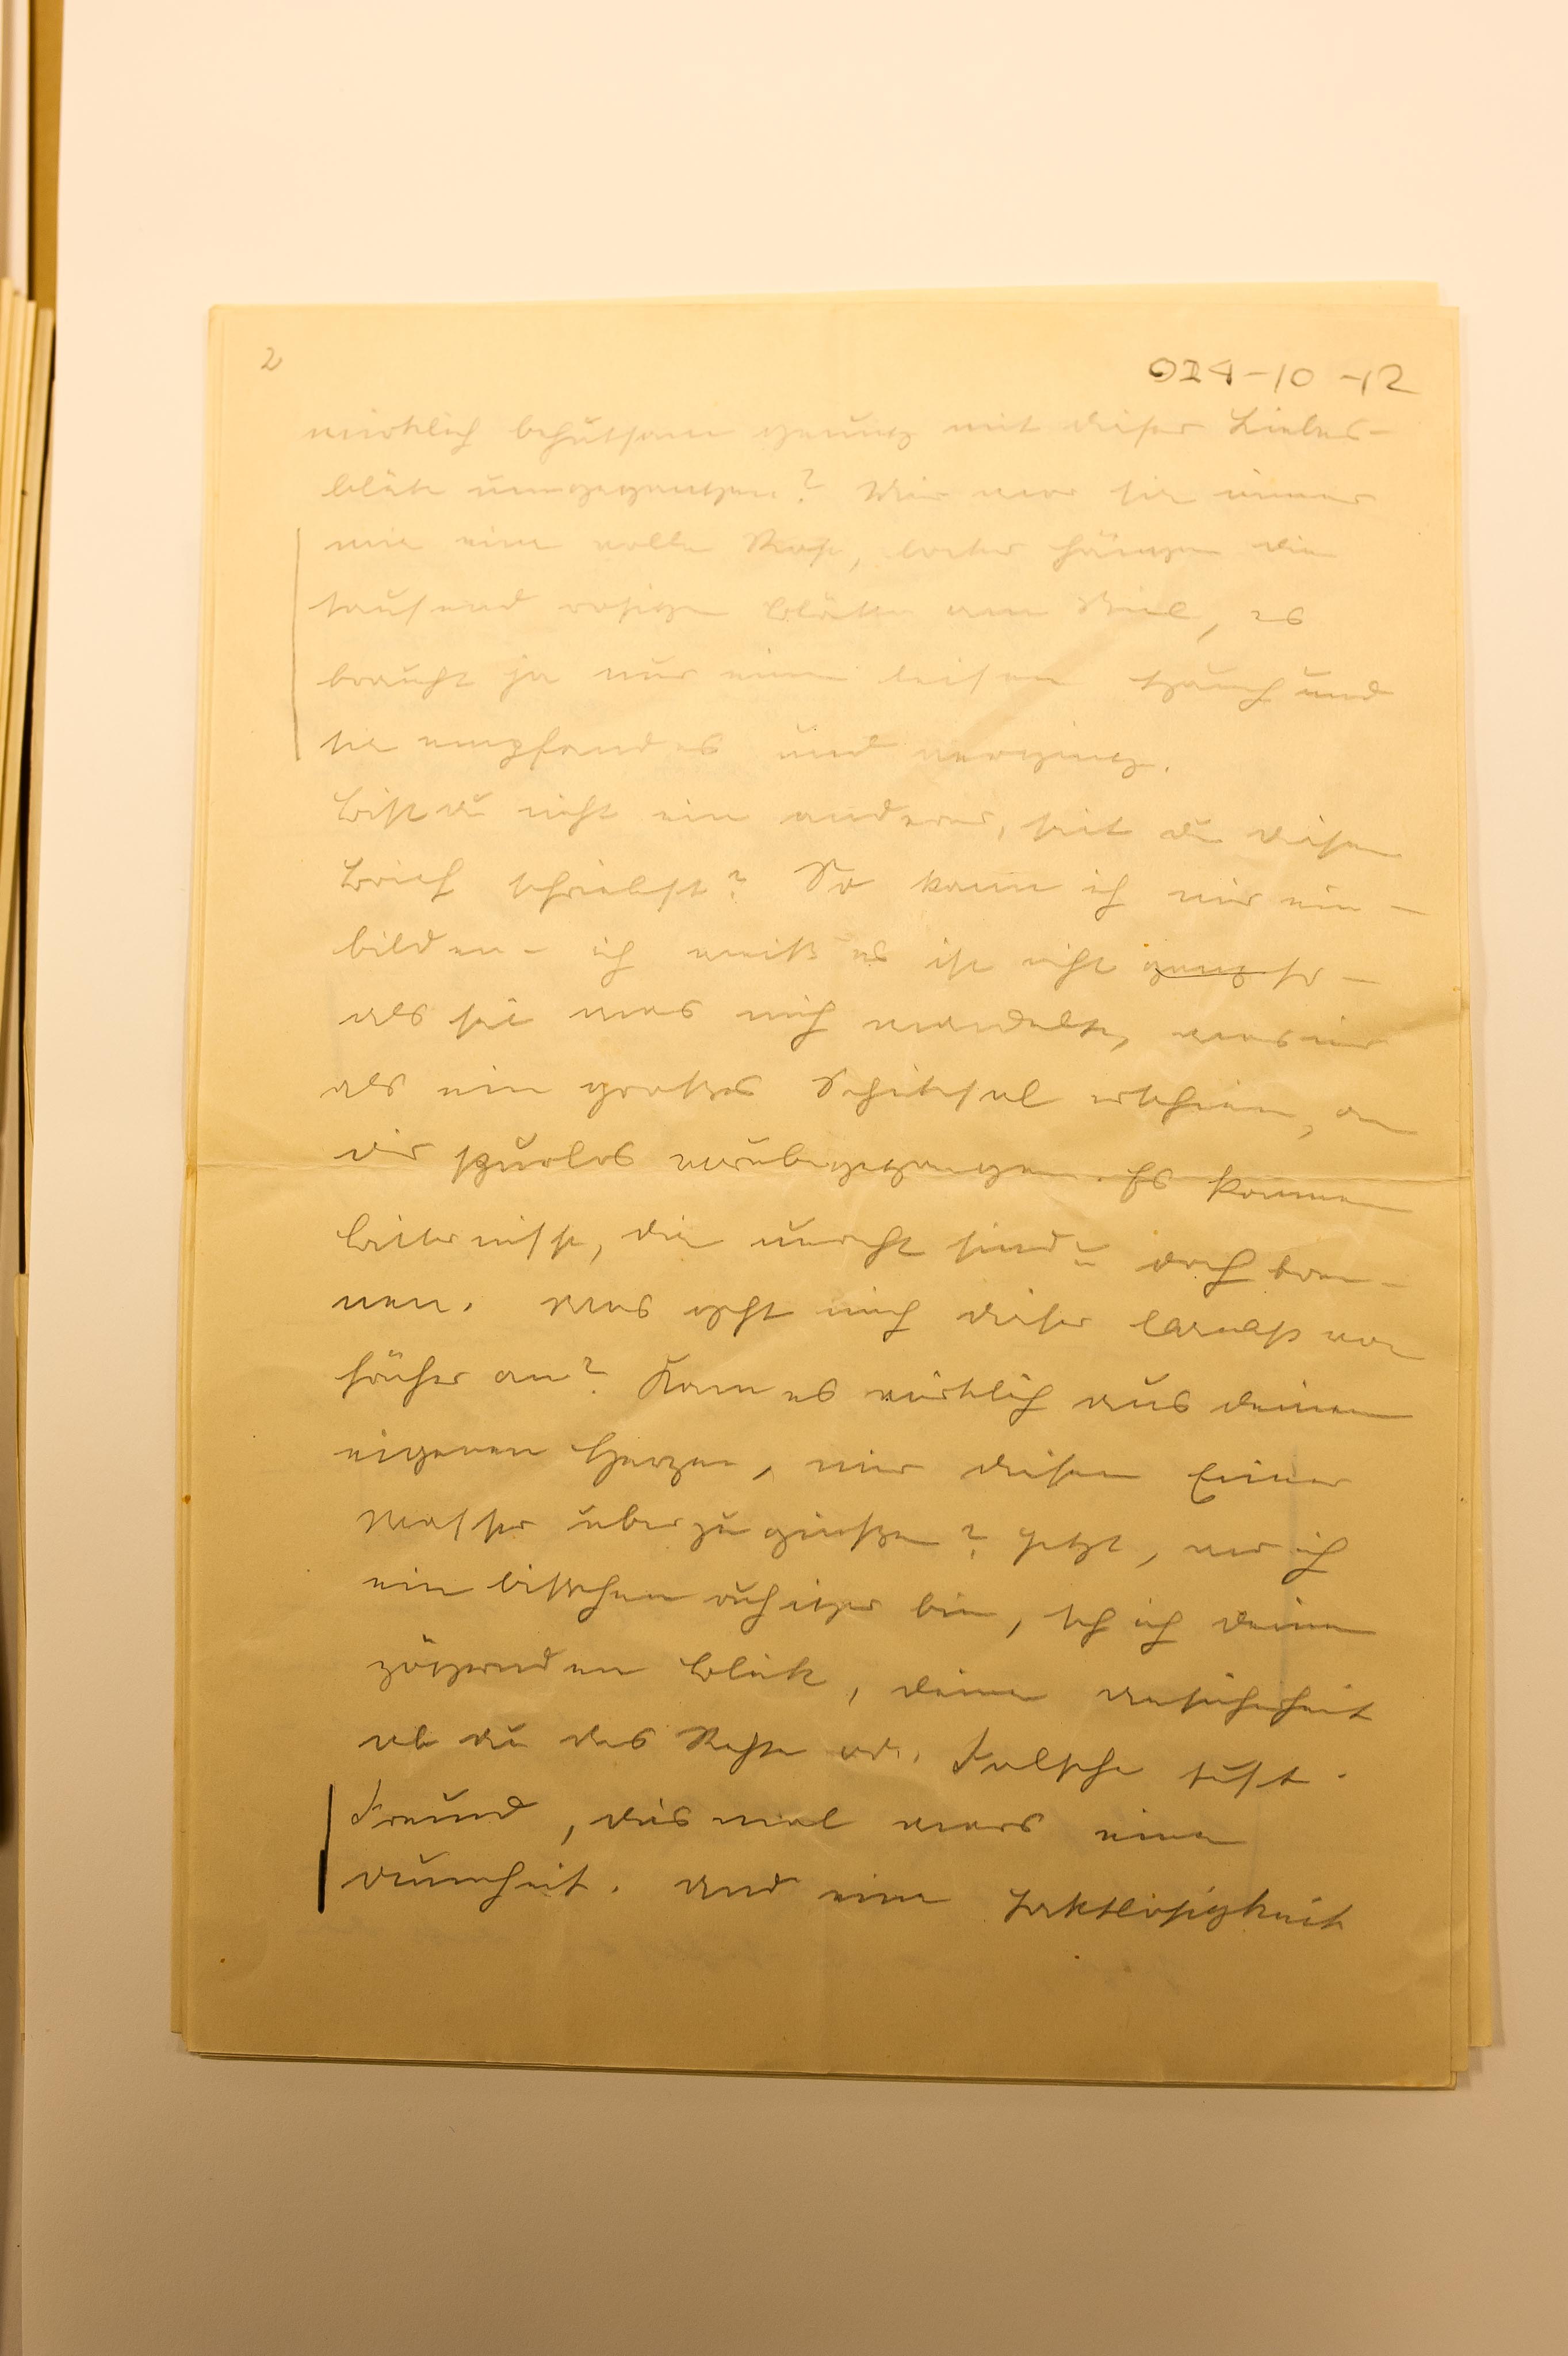 2
024-10-12
wirklich behutsam genug mit dieser Liebes-
blüte umgegangen? Mir war sie immer
wie eine volle Rose, locker hängen die
tausend rosigen Blätter am Stiel, es
braucht ja nur einen leisen Hauch und
sie empfand es und verging.
Bist du nicht ein anderer, seit du diesen
Brief schriebst? So kann ich mir ein-
bilden - ich weiß es ist nicht ganz so -
als sei was mich wandelte, was mir
als ein großes Schicksal erschien, an
dir spurlos vorübergegangen. Es kommen
Bitternisse, die unecht sind u doch bren-
nen. Was geht mich dieser von
früher an? Kam es wirklich aus deinem
eigenen Herzen, mir diesen Eimer
Wasser überzugießen? Jetzt, wo ich
ein bisschen ruhiger bin, seh ich deinen
zögernden Blick, deine Unsicherheit
ob du das Rechte od. Falsche tust.
Freund, diesmal wars eine
Dummheit. Und eine Taktlosigkeit